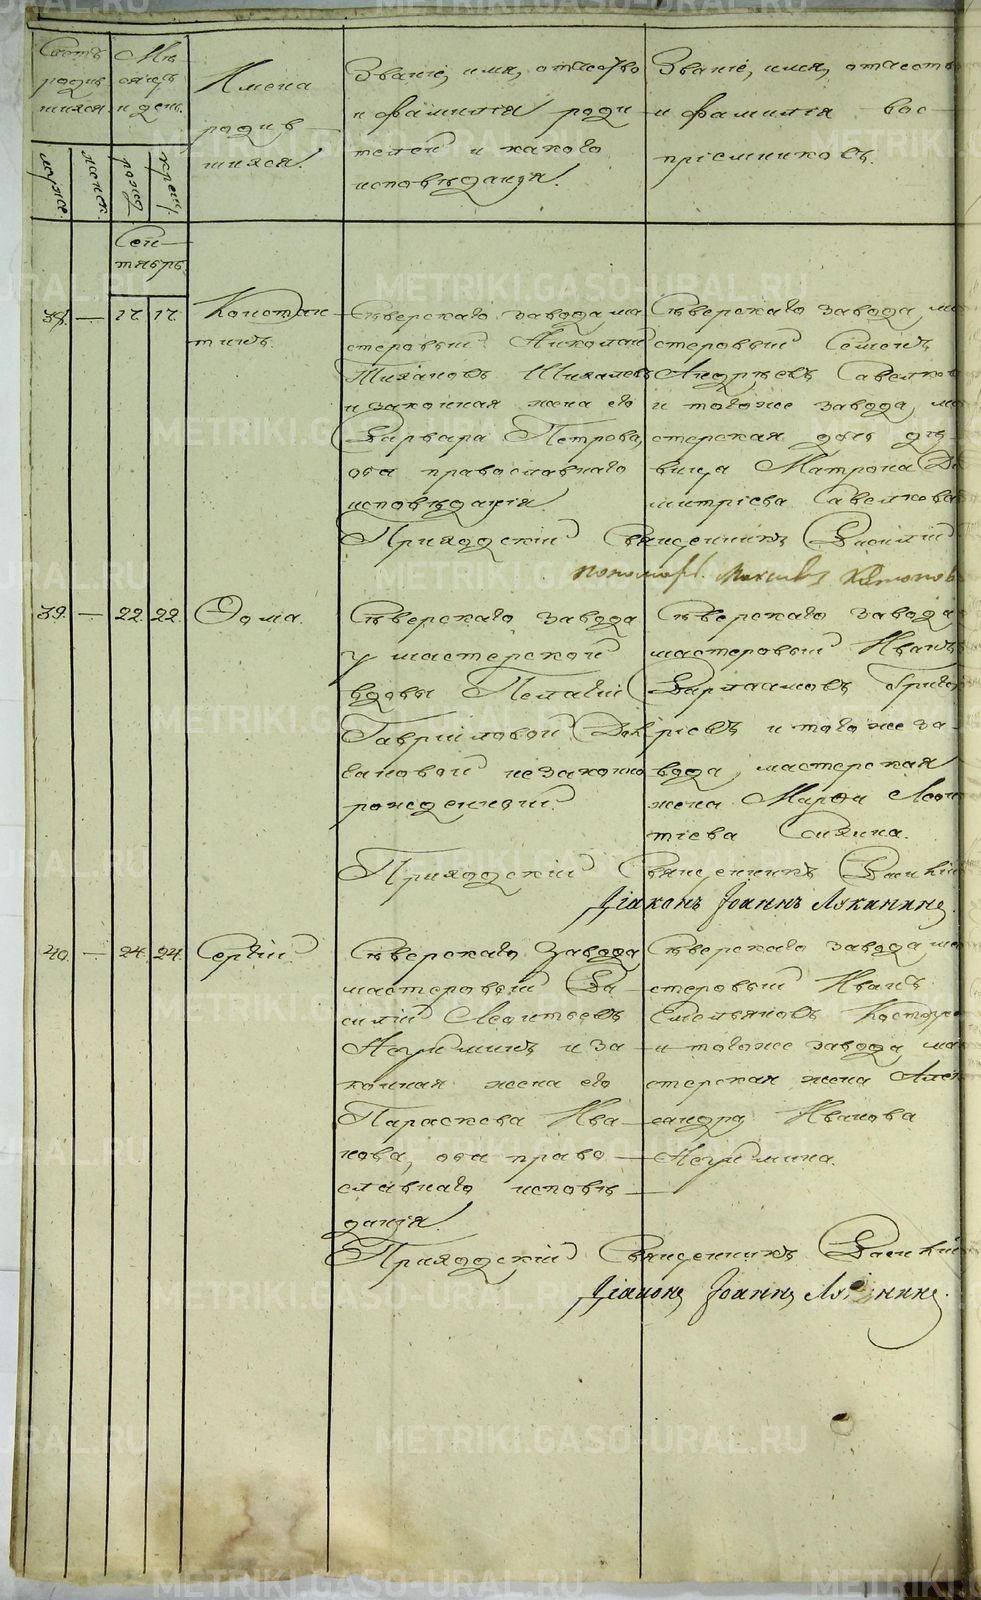 Счетъ родив шихся.
муже.
женск.
Мѣ сяцъ и день.
рожд
крещ.
Имена
родив
шихся.
Званіе, имя, отчество
и фамилія роди
телей и какого
исповѣданія.
Званіе, имя, отчеств
и фамилія вос
пріемниковъ.
Сен
тябрь.
38. — 17. 17.
Констан
тинъ.
Сѣверскаго завода ма
стеровый Николай
Тихановъ
и законная жена его
Варвара Петрова,
оба православнаго
исповѣданія.
Сѣверскаго завода, ма
стеровый Семенъ
Андрѣевъ Савелков
и того же завода, ма
стерская дочь дѣ
вица Матрона Ди
митріева Савелкова
Приходскій Священникъ Василій
пономарь
39. — 22. 22.
Ѳома.
Сѣверскаго завода
у мастерской
вдовы Пелагіи
Гавриловой
незаконно
рожденный.
Сѣверскаго завода
мастеровый Иванъ
Варлаамовъ Григо
рьевъ и того же за
вода, мастерская
жена Марфа Леон
тіева
Приходскій Священникъ Василій
Діаконъ Іоаннъ Луканинъ.
40. — 24. 24.
Сергій.
Сѣверскаго завода
мастеровый Ва
силій Леонтьевъ
и за
конная жена его
Параскева Ива
нова, оба право
славнаго исповѣ
данія.
Сѣверскаго завода, ма
стеровый Иванъ
Емельяновъ
и того же завода, ма
стерская жена Алек
сандра Иванова
Приходскій Священникъ Василій
Діаконъ Іоаннъ Луканинъ.
METRIKI.GASO-URAL.RU